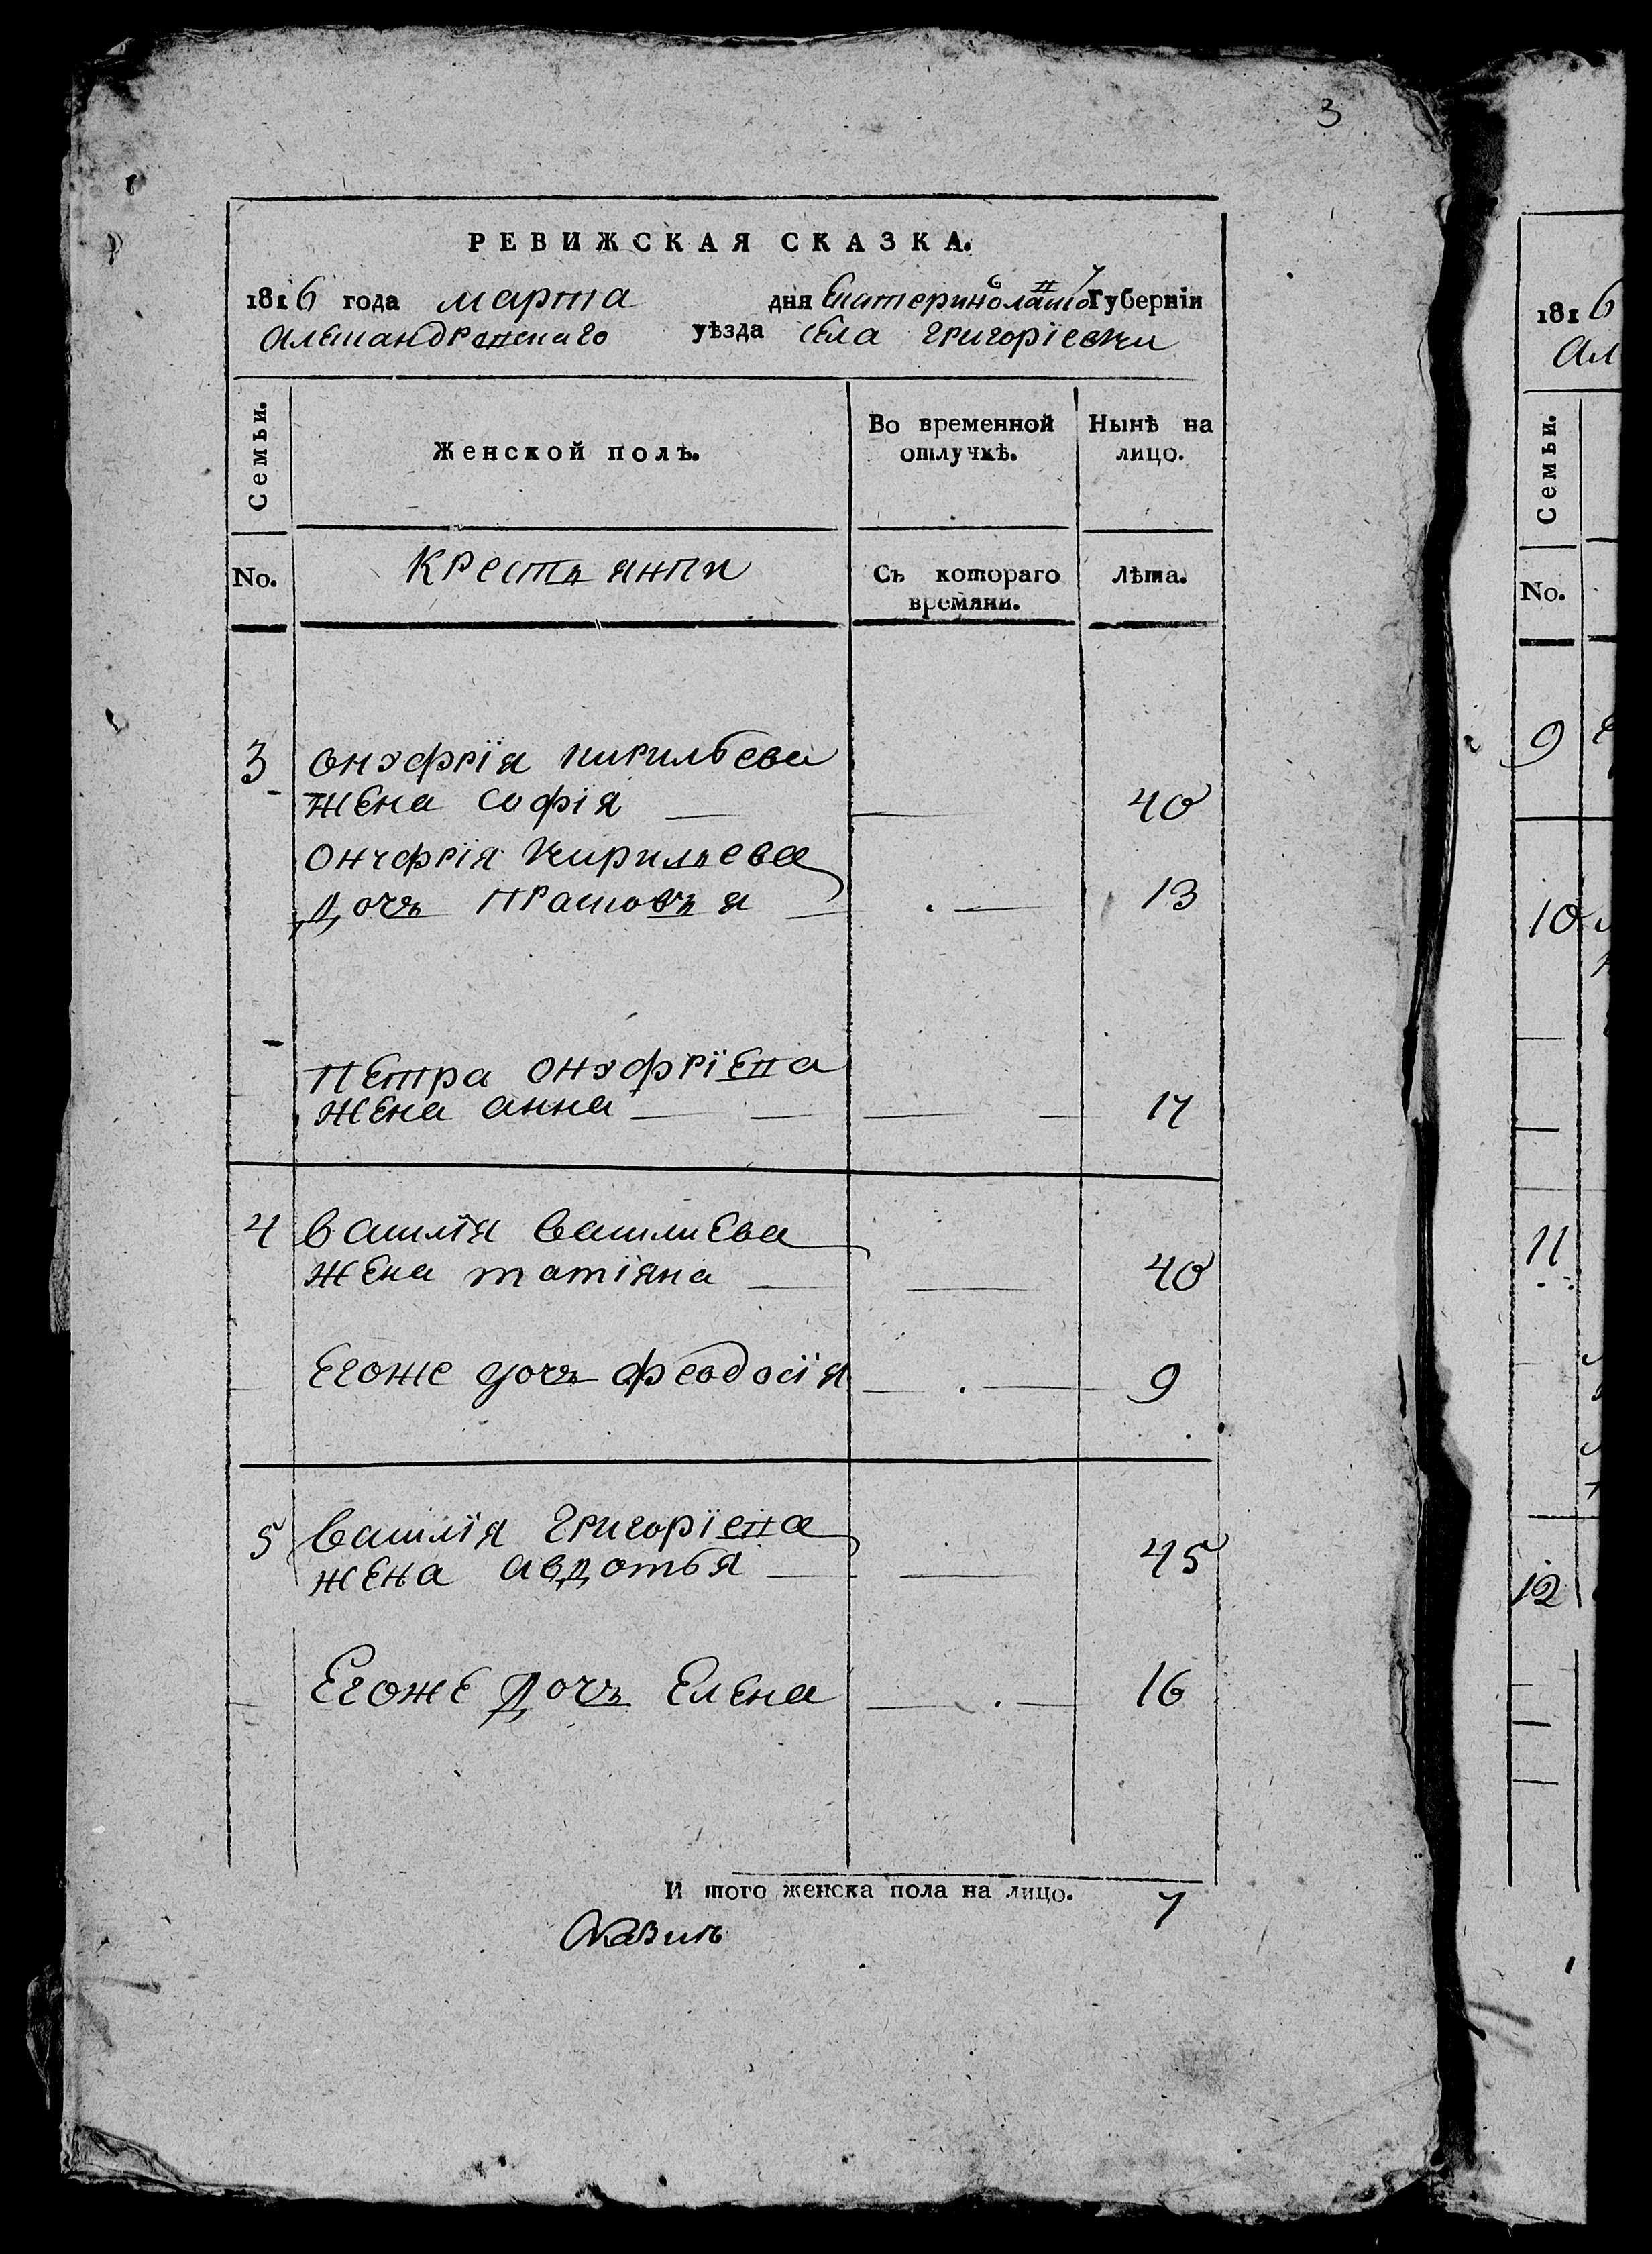 3
РЕВИЖСКАЯ СКАЗКА.
1816 года марта дня Екатеринославской Губерніи
Александровскаго уѣзда села григоріевки
Семьи.
Женской полъ.
Во временной отлучкѣ.
Нынѣ на лицо.
No.
Крестьянки
Съ котораго времяни.
Лѣта.
3 онуфрія кирильева
жена софія 40
Онуфрія Кирильева
дочь прасковья 13
петра онуфріева
жена анна 17
4 василія василиева
жена татіяна 40
Егоже дочь феодосія 9
5 василія григоріева
жена авдотья 45
Егоже дочь Елена 16
И того женска пола на лицо. 7
1816
Ал
Семьи.
No.
9
10
11
12